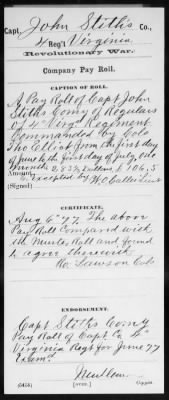 Capt. John Stith's Co.,
4 Reg't Virginia.
Revolutionary War.
Company Pay Roll.
CAPTION OF ROLL.
A Pay Roll of Capt John
Stiths Comy of Regulars
of 4th Virga Regiment
Commanded by Colo
Tho Elliott from the first day
of June to the first day of July, one
Month £ 83 Dollars
Excepted by
(Signed)
CERTIFICATE.
Aug 6th 77. The above
Pay Roll Compared with
the Muster Roll and found
to agree therewith
Ro: Lawson Colo
ENDORSEMENT.
Capt Stiths Comy
Pay Roll of Capt Co 4th
Virginia Regt for June 77
Exam'd
(645d) (OVER.) Copyist.